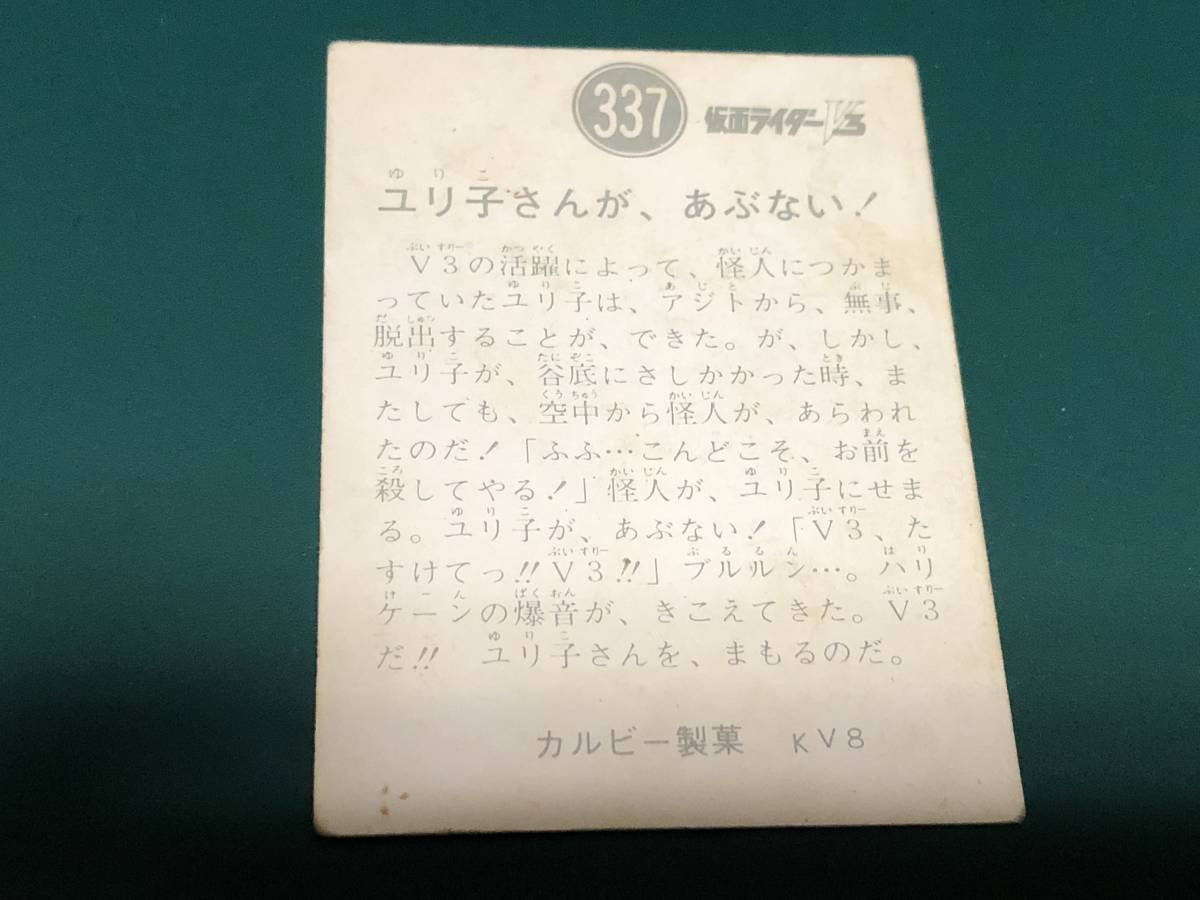 337 仮面ライダーV3
ユリ子さんが、あぶない!
V3の活躍によって、怪人につかま
っていたユリ子は、アジトから、無事、
脱出することが、できた。が、しかし、
ユリ子が、谷底にさしかかった時、ま
たしても、空中から怪人が、あらわれ
たのだ!「ふふ…こんどこそ、お前を
殺してやる!」怪人が、ユリ子にせま
る。ユリ子が、あぶない!「V3、た
すけてっ!!V3!!」ブルルン…。ハリ
ケーンの爆音が、きこえてきた。V3
だ!! ユリ子さんを、まもるのだ。
カルビー製菓 KV8